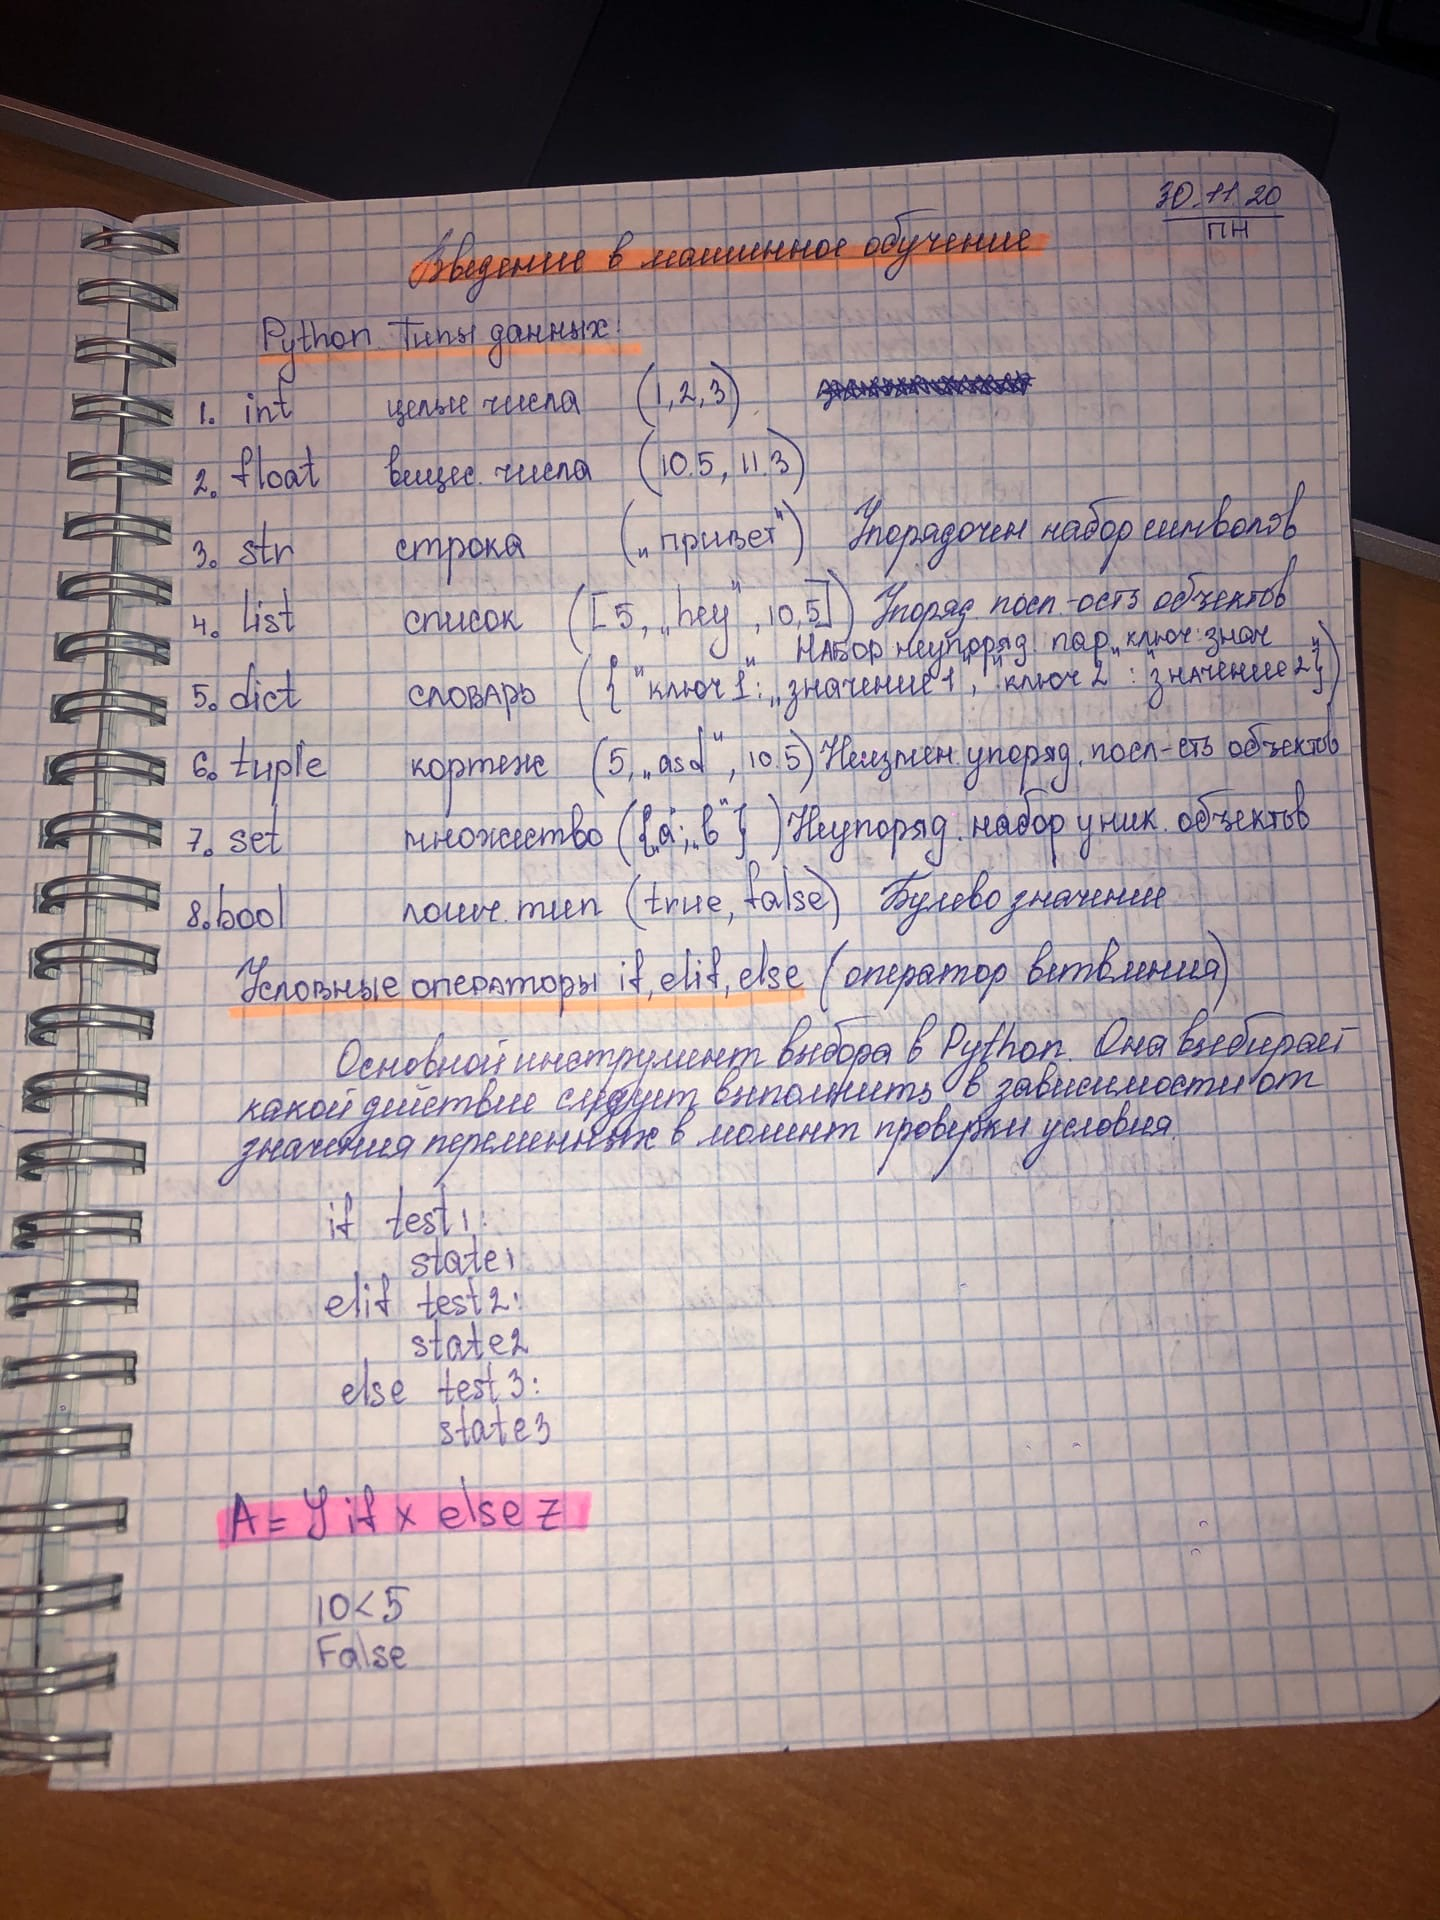 30.11.20
ПН
Введение в машинное обучение
Python. Типы данных:
1. int целые числа (1,2,3)
2. float вещес. числа (10.5, 11.3)
3. str строка („привет“) Упорядочен набор символов
4. list список ([5, „hey“, 10,5]) Упоряд. посл.-ость объектов
Набор неупоряд. пар „ключ:знач“
5. dict словарь ({"ключ1“: „значение1“, "ключ2“: "значение2“})
6. tuple кортеж (5, „asd“, 10.5) Неизмен. упоряд. посл-сть объектов
7. set множество ({„a“; „b“}) Неупоряд. набор уник. объектов
8. bool логич. тип (true, false) Булево значение
Условные операторы if, elif, else (оператор ветвления)
Основной инструмент выбора в Python. Она выбирает
какой действие следует выполнить в зависимости от
значения переменных в момент проверки условия.
if test1:
state1
elif test2:
state2
else test3:
state3
A = Y if x else z
10<5
False